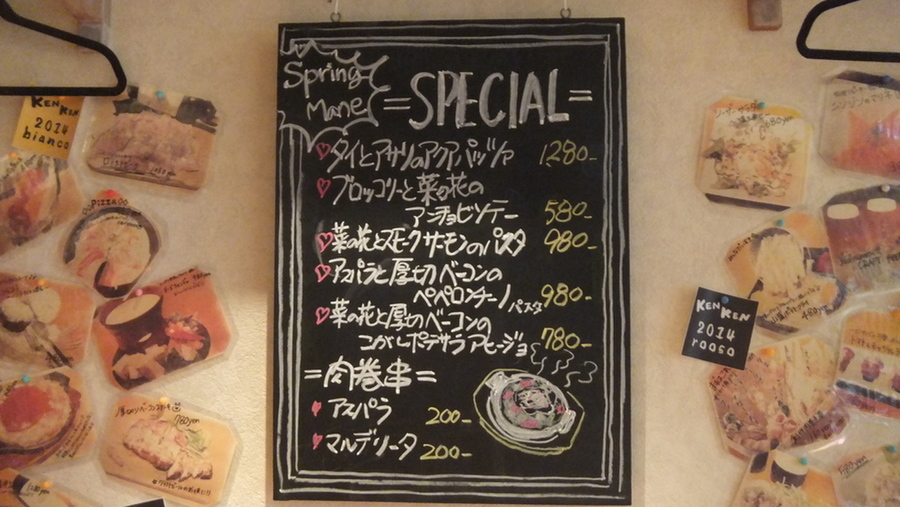 Spring
Mane
=SPECIAL=
タイとアサリのアクアパッツァ 1280-
ブロッコリーと菜の花の
アンチョビソテー 580-
菜の花とスモークサーモンのパスタ 980-
アスパラと厚切ベーコンの
ペペロンチーノパスタ 980-
菜の花と厚切ベーコンの
こがしポテサラアヒージョ 780-
=肉巻串=
アスパラ 200-
マルゲリータ 200-
KENKEN
2014
bianco
Pizza
780yen
KENKEN
2014
rosso
480yen